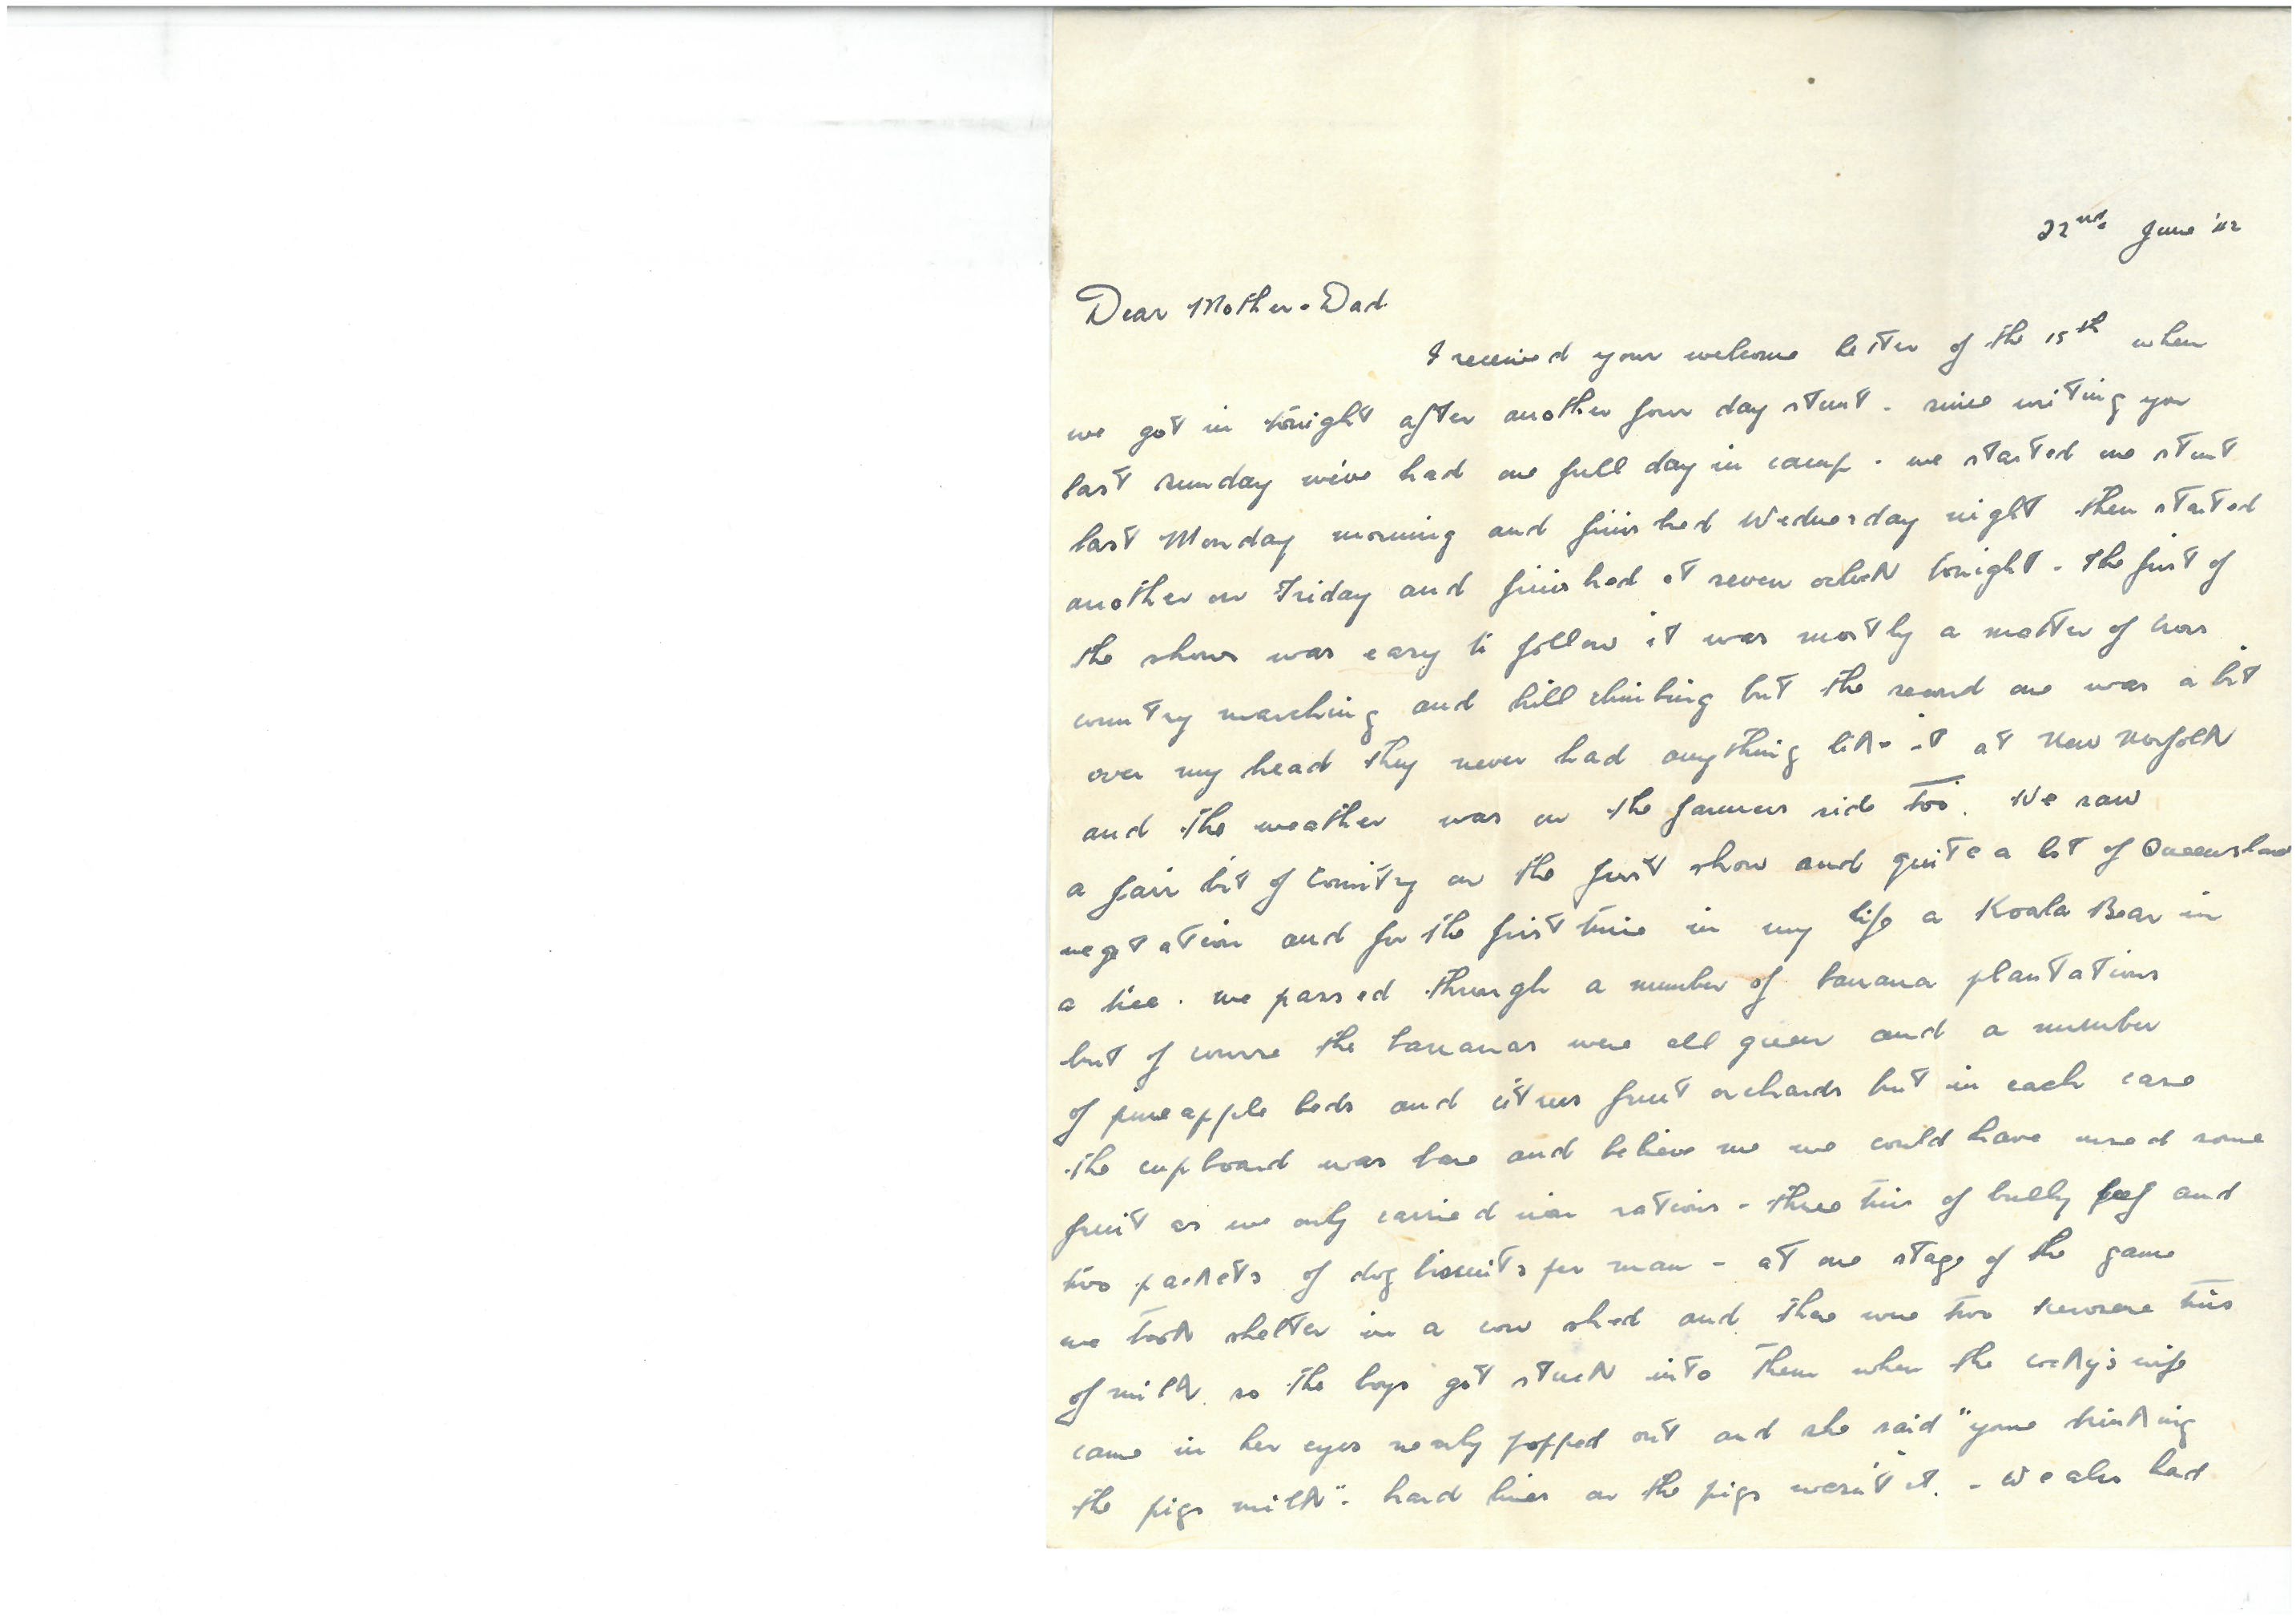 22nd. June '42
Dear Mother & Dad
I received your welcome letter of the 15th when
we got in tonight after another four day stunt - since writing you
last Sunday we've had one full day in camp. we started one stunt
last Monday morning and finished Wednesday night then started
another on Friday and finished at seven oclock tonight - the first of
the shows was easy to follow it was mostly a matter of cross
country marching and hill climbing but the second one was a bit
over my head they never had anything like it at New Norfolk
and the weather was on the farmers side too. We saw
a fair bit of country on the first show and quite a lot of Queensland
vegetation and for the first time in my life a Koala Bear in
a tree. we passed through a number of banana plantations
but of course the bananas were all green and a number
of pineapple beds and citrus fruit orchards but in each case
the cupboard was bare and believe me we could have used some
fruit as we only carried iron rations - three tins of bully beef and
two packets of dog biscuits per man - at one stage of the game
we took shelter in a cow shed and there were two kerosene tins
of milk so the boys got stuck into them when the cocky's wife
came in her eyes nearly popped out and she said "youre drinking
the pigs milk". hard lines on the pigs wasn't it. - We also had